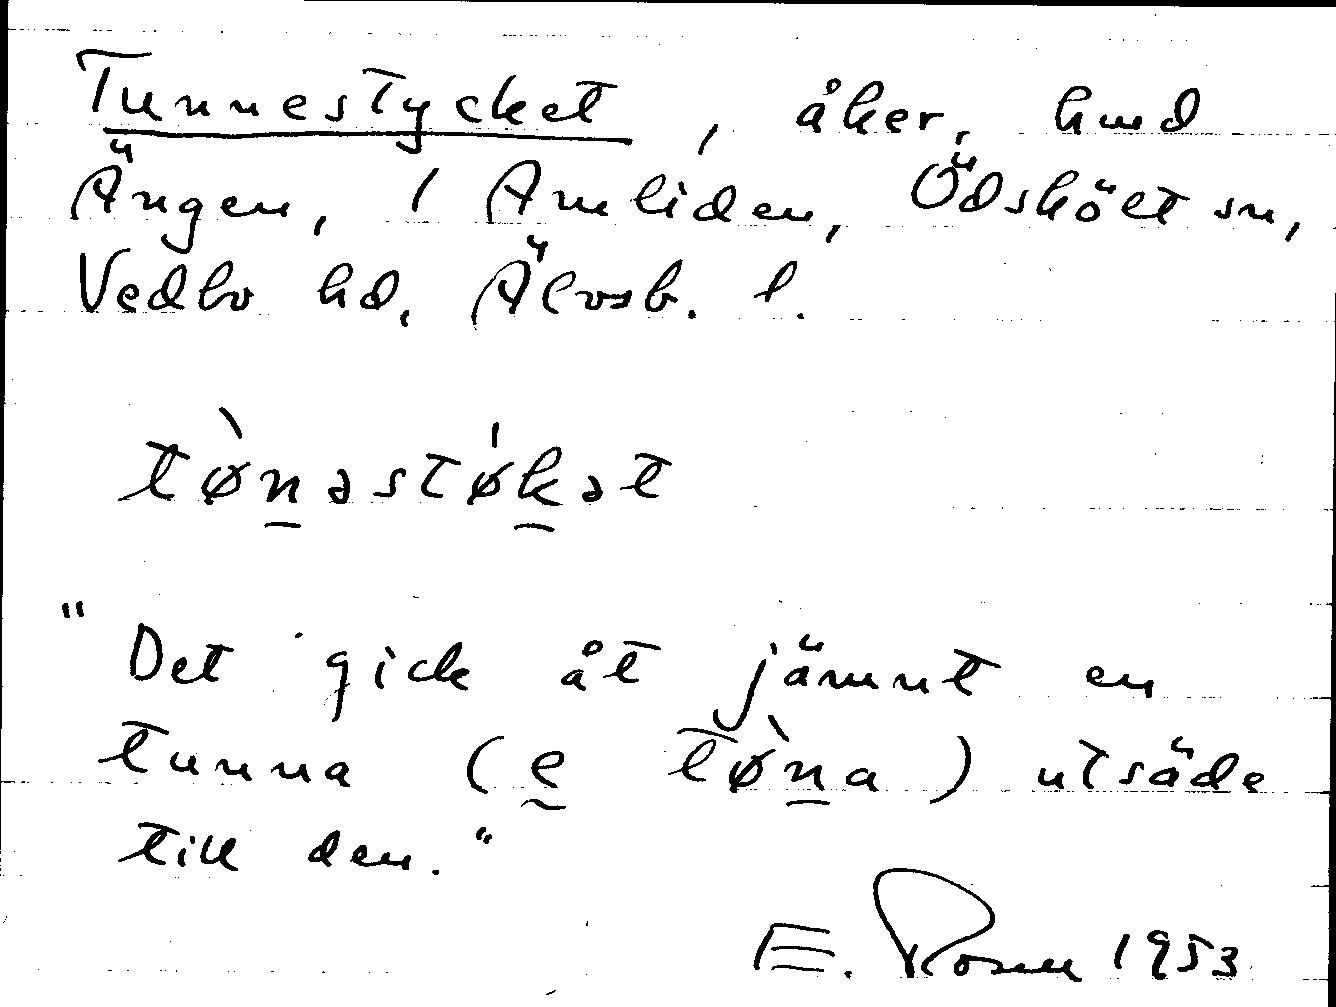 Tunnestycket, åker, hmd
Ängen, 1 Amliden, Ödskölt sn,
Vedbo hd, Älvsb. l.
tø̀n̲əstø̍k̲ət
"Det gick åt jämnt en
tunna (ḛ tø̀n̲a) utsäde
till den."
E. Rosen 1953